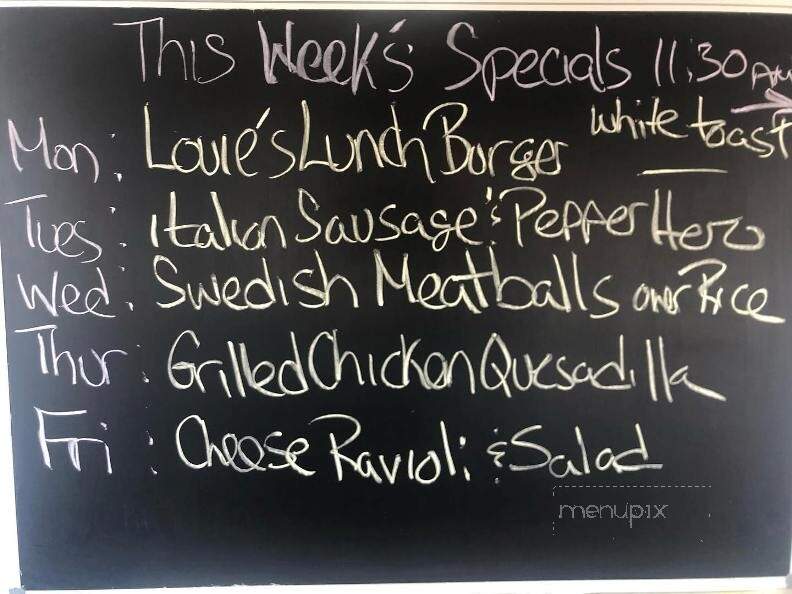 This Week's Specials 11:30 AM
Mon: Louie's Lunch Burger white toast
Tues: italian Sausage & Pepper Hero
Wed: Swedish Meatballs over Rice
Thur: Grilled Chicken Quesadilla
Fri: Cheese Ravioli & Salad
menupix